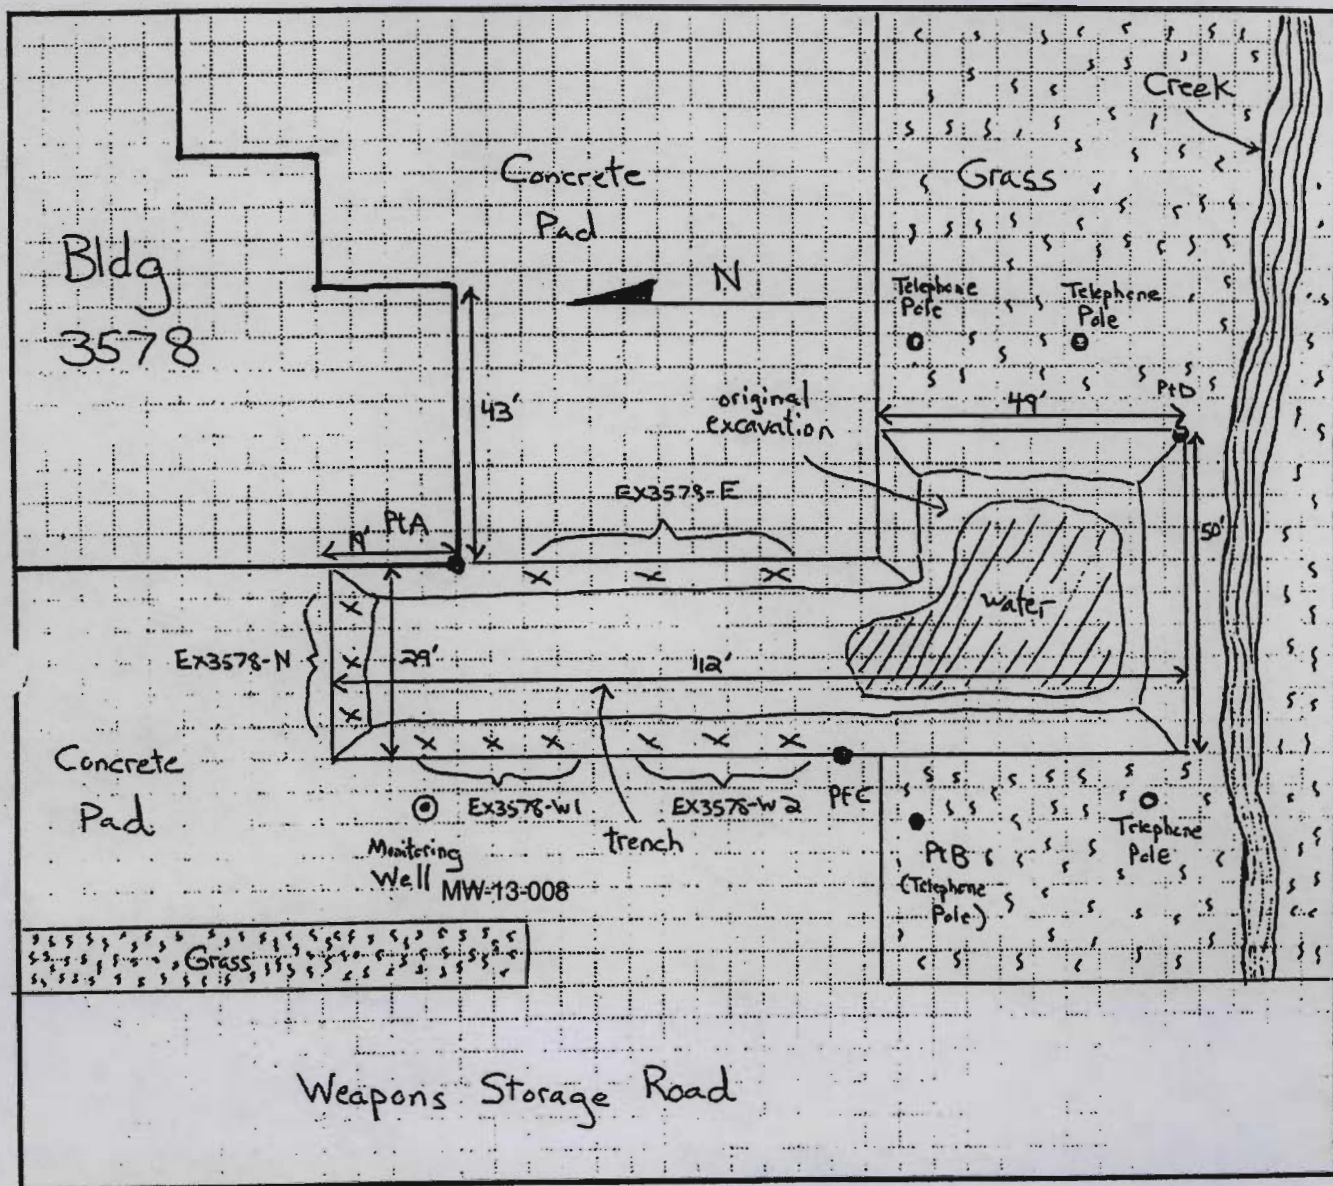 Creek
Concrete
Pad
Grass
Bldg
3578
N
Telephone
Pole
Telephone
Pole
PtD
49'
43'
original
excavation
EX3578-E
PtA
50'
water
EX3578-N
29'
112'
Concrete
Pad
EX3578-W1
EX3578-W2
PtC
trench
Monitoring
Well MW-13-008
PtB
(Telephone
Pole)
Telephone
Pole
Grass
Weapons Storage Road